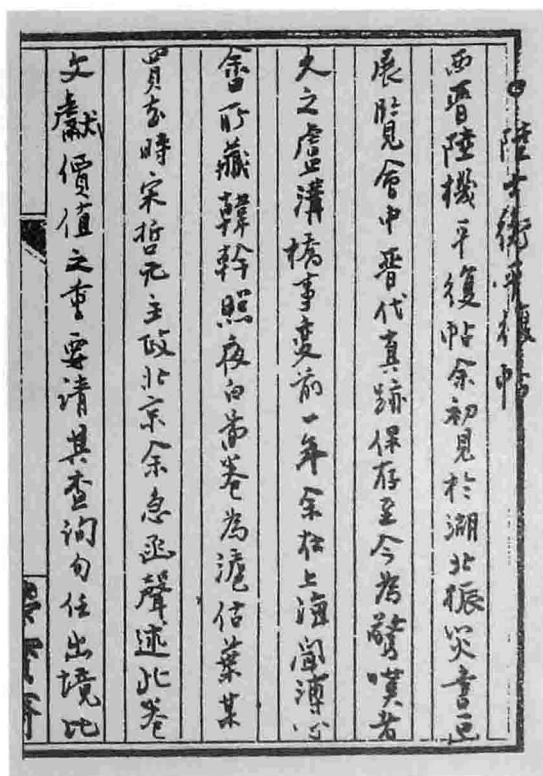 陸士衡平復帖
西晋陸機平復帖余初見於湖北振災書画
展覧會中晋代真跡保存至今為驚嘆者
久之盧溝橋事变前一年余在上海聞溥心
畬所藏韓幹照夜白啚卷為滬估葉某
買去時宋哲元主政北京余急函聲述此卷
文獻價值之重要請其查詢勿任出境比